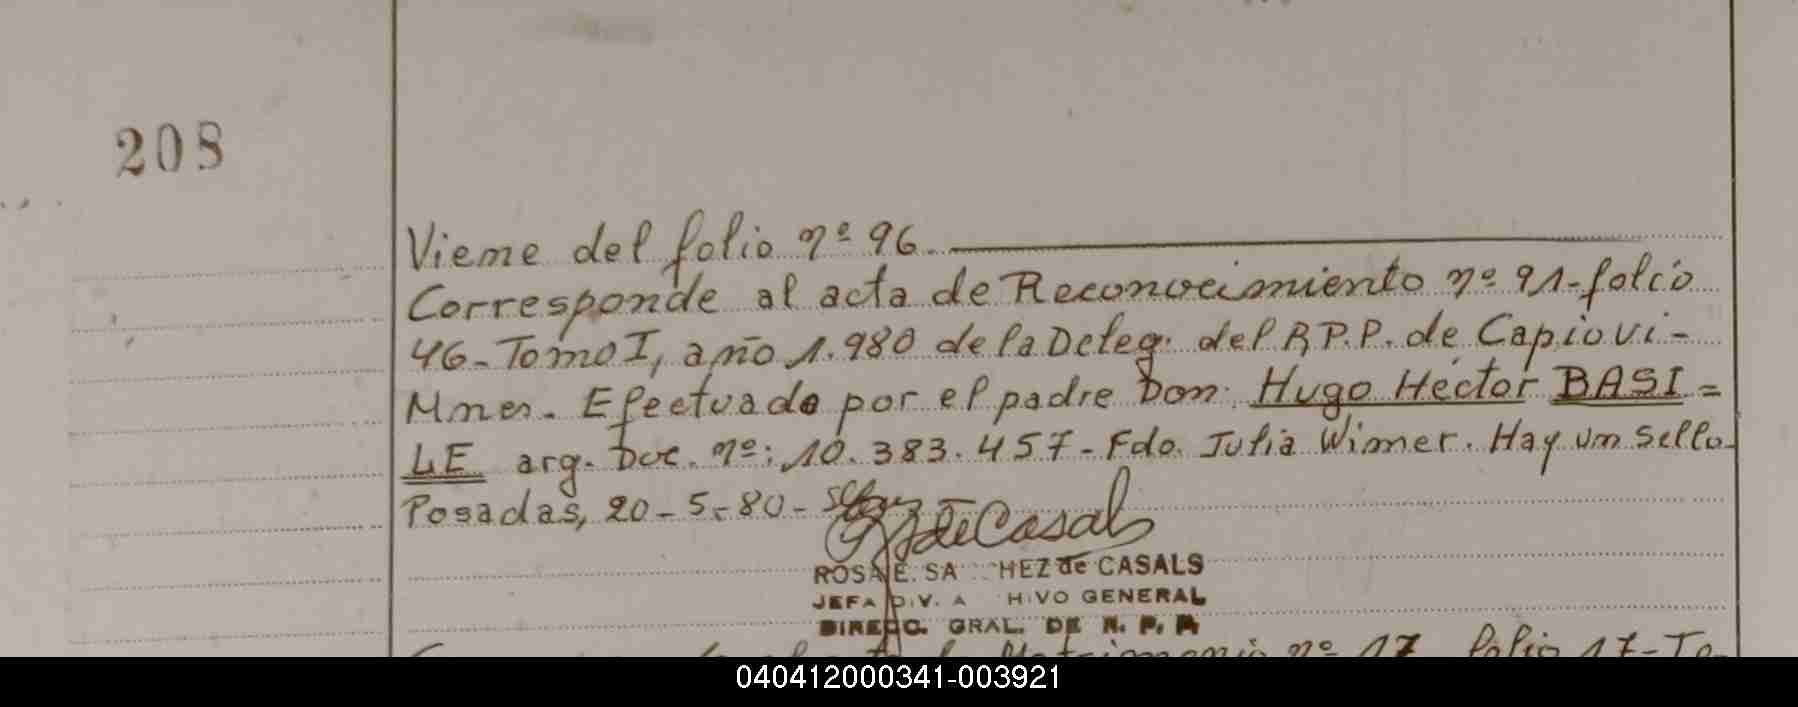 208
Viene del folio nº 96.
Corresponde al acta de Reconocimiento nº 91-folio
46-Tomo I, año 1.980 de la Deleg. del R.P.P. de Capiovi-
Mnes. Efectuado por el padre Don: Hugo Héctor BASI=
LE arg. Doc. nº: 10.383.457- Fdo. Julia Wimer. Hay un sello-
Posadas, 20-5-80-
de Casals
ROSA E. SA HEZ de CASALS
JEFA DIV. A HIVO GENERAL
DIRECC. GRAL. DE R. P. P.
Matrimonio nº 17 folio 17-To-
040412000341-003921